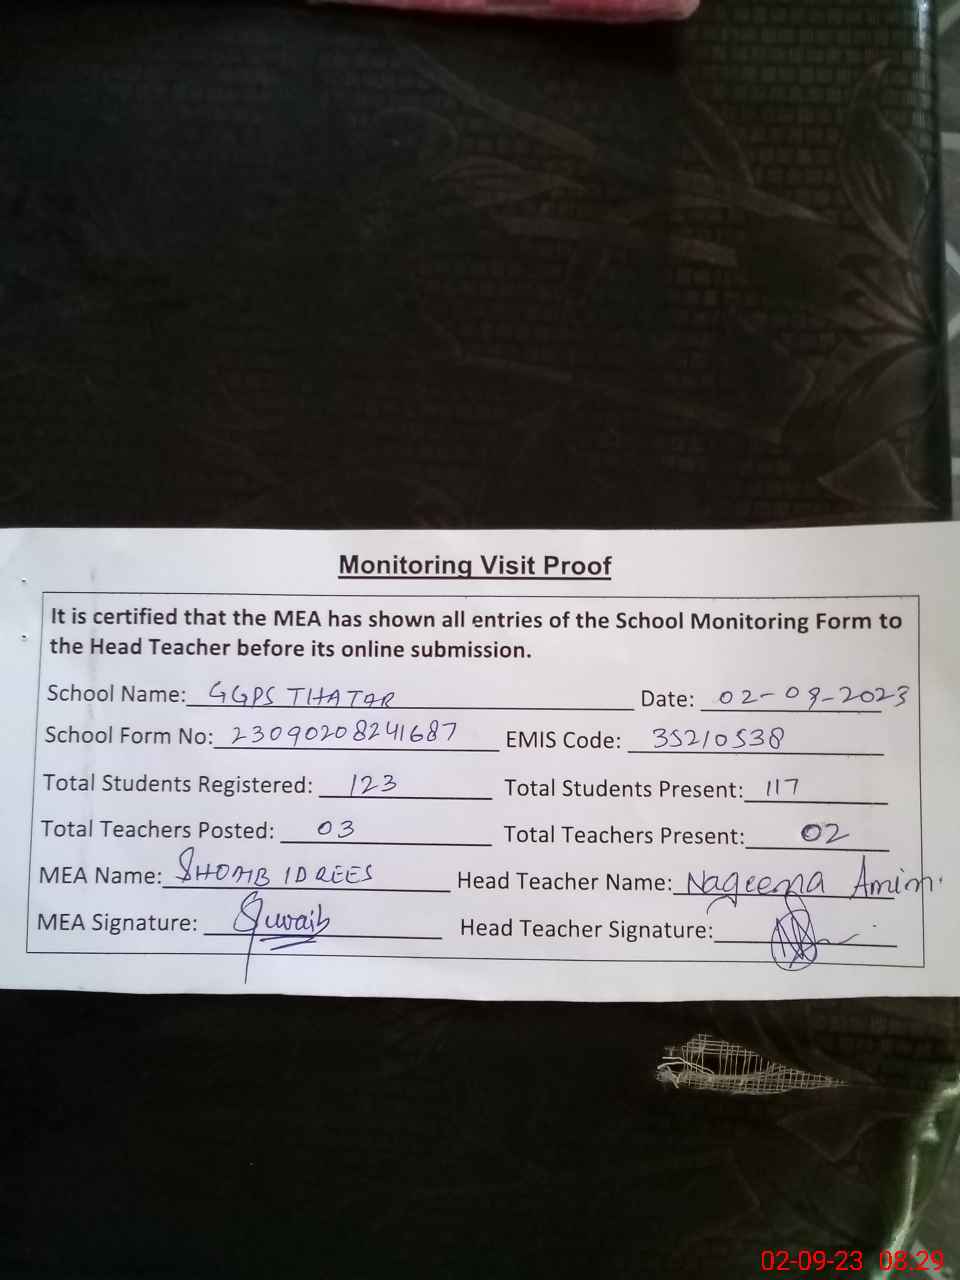 Monitoring Visit Proof
It is certified that the MEA has shown all entries of the School Monitoring Form to
the Head Teacher before its online submission.
School Name: GGPS THATAR Date: 02-09-2023
School Form No: 23090208241687 EMIS Code: 35210538
Total Students Registered: 123 Total Students Present: 117
Total Teachers Posted: 03 Total Teachers Present: 02
MEA Name: SHOAIB IDREES Head Teacher Name: Nageena Amin.
MEA Signature: Head Teacher Signature:
02-09-23 08:29